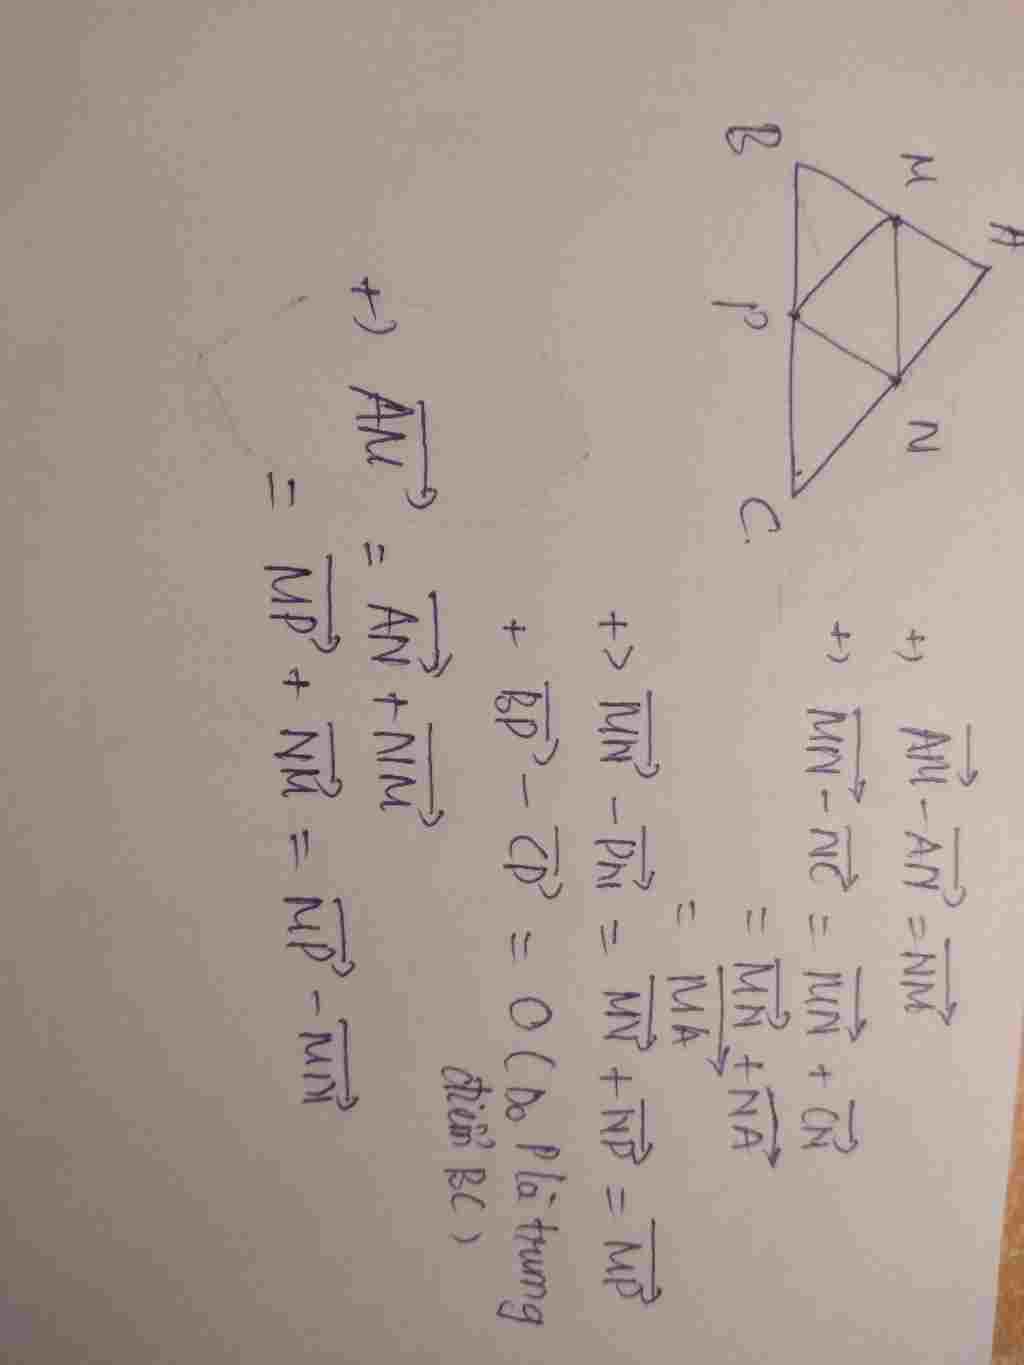 A
M
N
B
P
C
+) AM - AN = NM
+) MN - NC = MN + CN
= MN + NA
= MA
+) MN - PN = MN + NP = MP
+ BP - CP = 0 (Do P là trung
điểm BC)
+) AM = AN + NM
= MP + NM = MP - MN